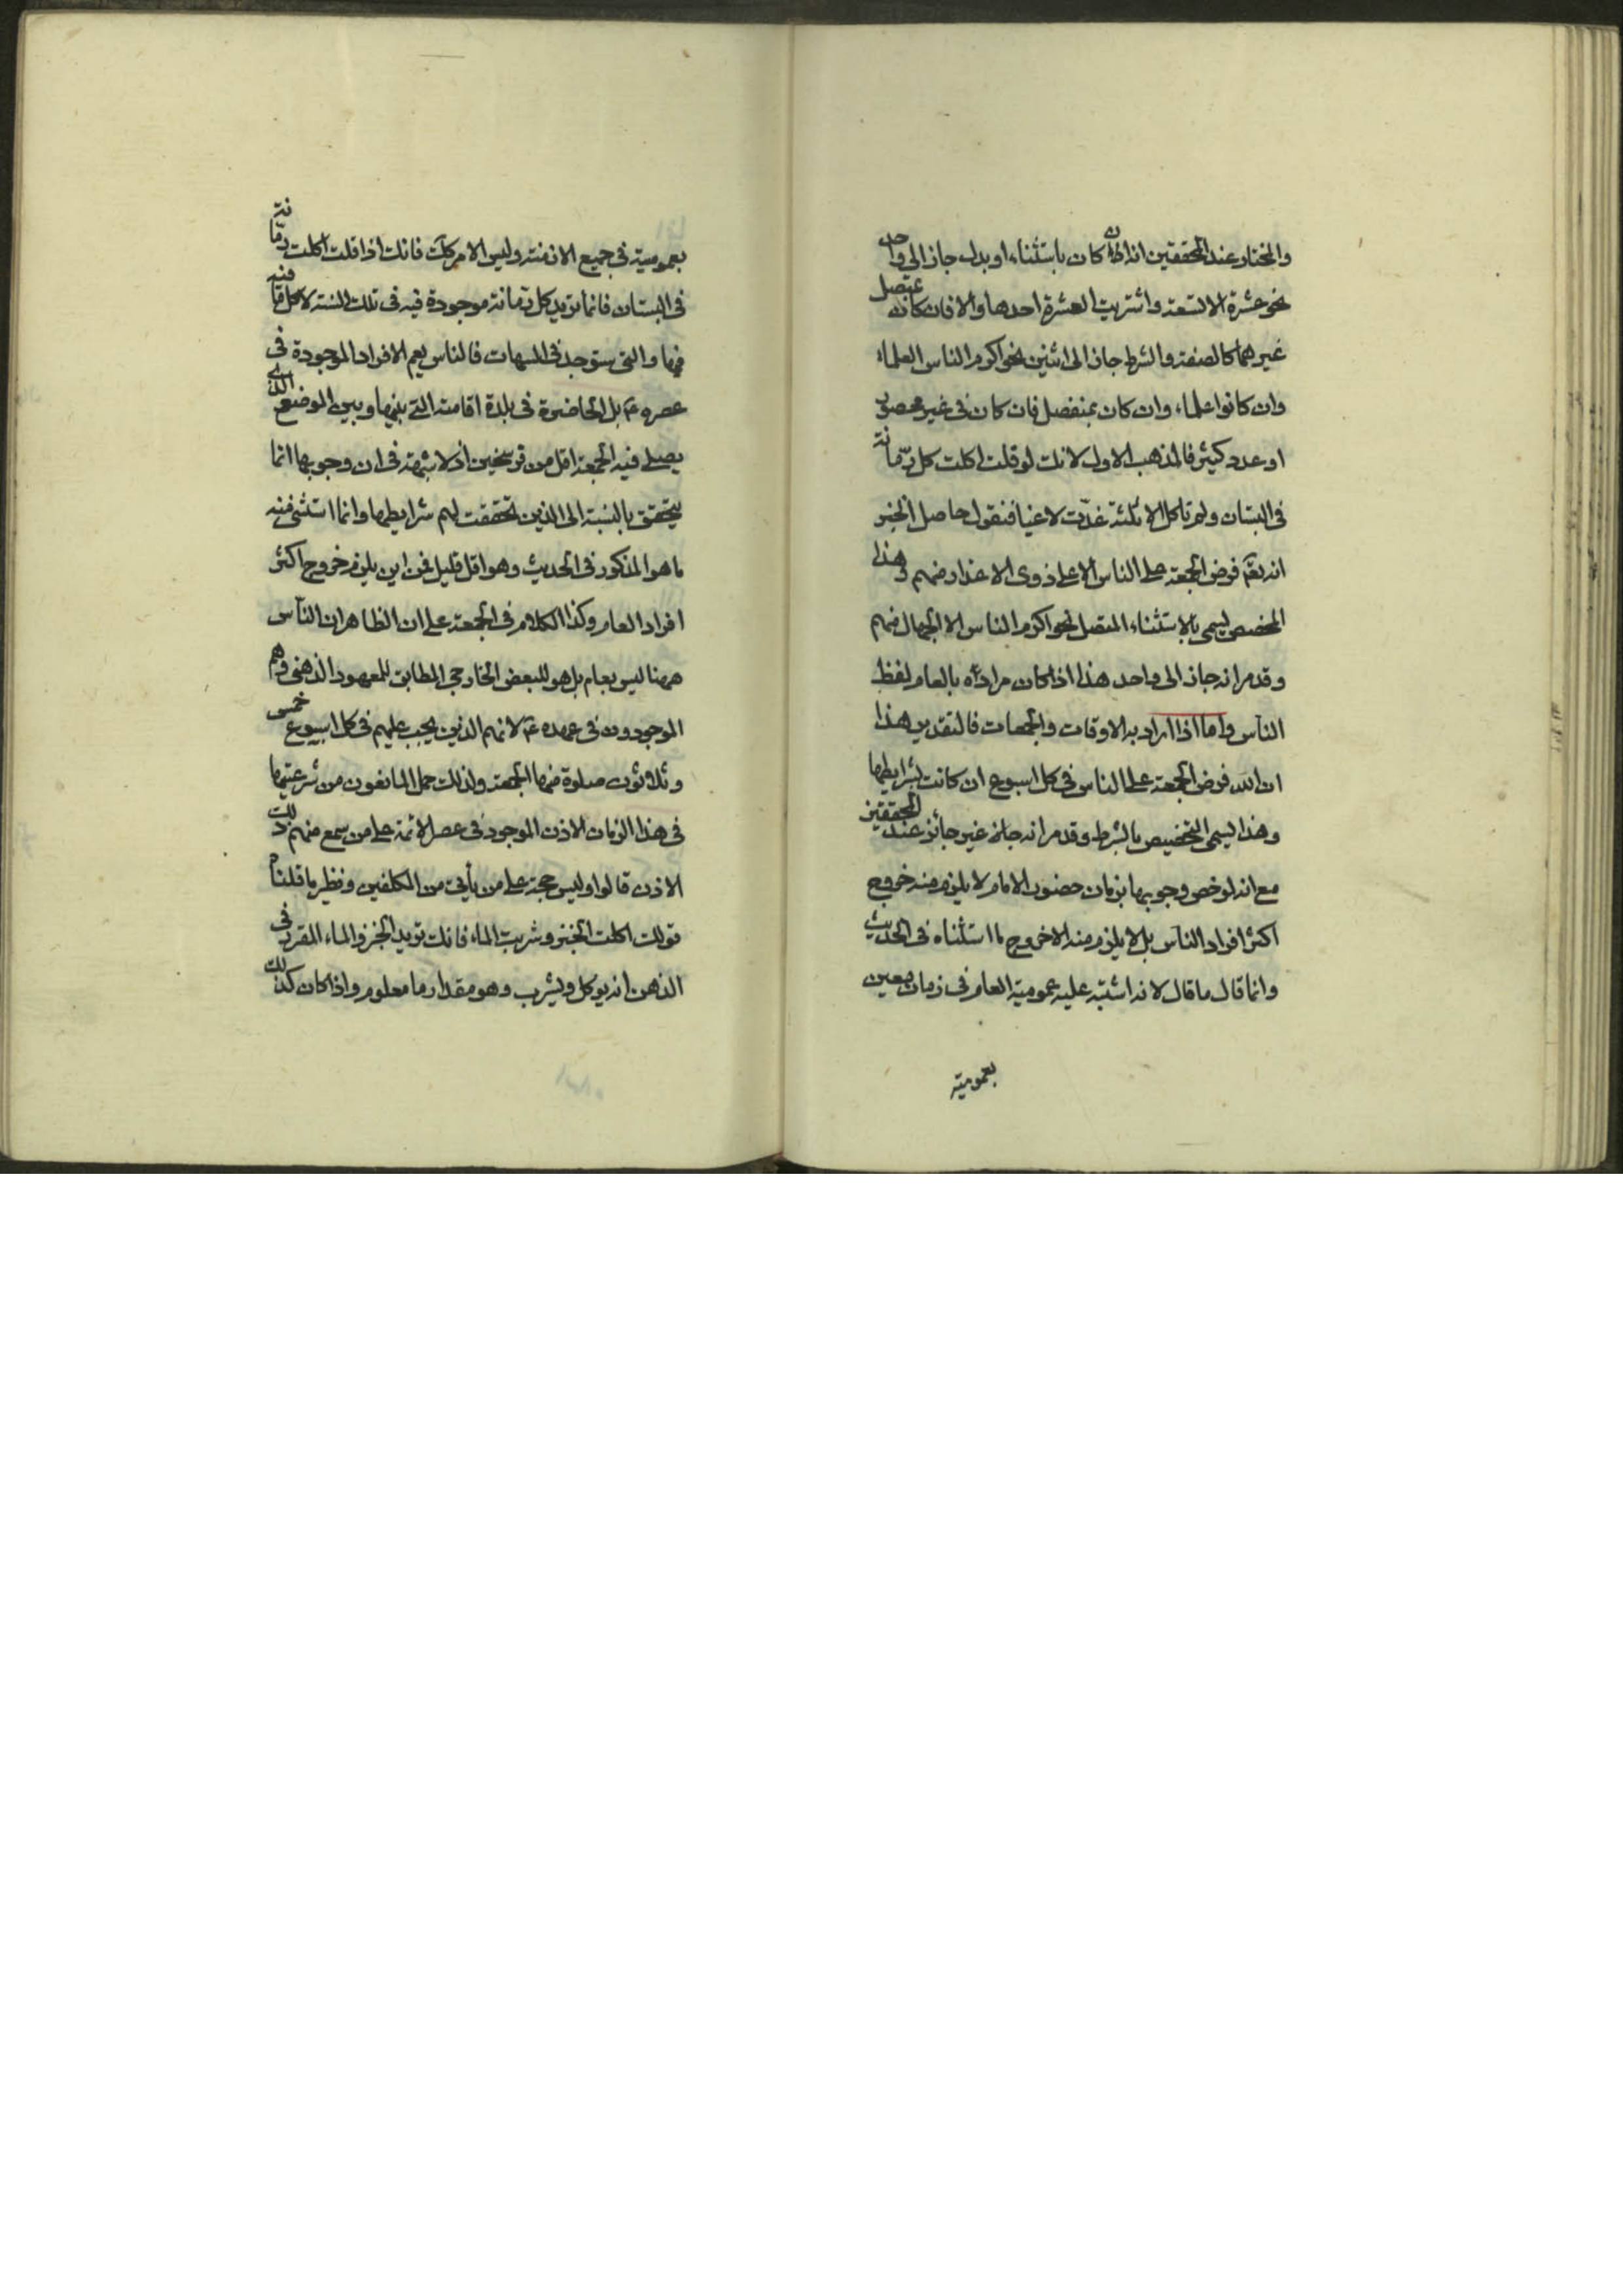 والمختار عند المحققين انه ان كان باستثناء او بدل جاز الى واحد
نحو عشرة الا تسعة واشتريت العشرة احدها والا فان كان بمتصل
غيرهما كالصفة والشرط جاز الى اثنين نحو اكرم الناس العلماء
وان كانوا علماء وان كان بمنفصل فان كان في غير محصور
او عدد كثير فالمذهب الاول لانك لو قلت اكلت كل رمانة
في البستان ولم تاكل الا ثلثة عدت لاغيا فنقول حاصل الخبر
انه تعم فرض الجمعة على الناس الا على ذوى الاعذار منهم وهذا
المخصص يسمى بالاستثناء المتصل نحو اكرم الناس الا الجهال منهم
وقد مر انه جاز الى واحد هذا اذا كان مراده بالعام لفظ
الناس واما اذا اراد به الاوقات والجمعات فالتقدير هذا
ان الله فرض الجمعة على الناس في كل اسبوع ان كانت بشرايطها
وهذا يسمى التخصيص بالشرط وقد مر انه غير جائز عند المحققين
مع انه لو خص وجوبها بزمان حضور الامام لا يلزم منه خروج
اكثر افراد الناس بل لا يلزم منه الا خروج ما استثناه في الحديث
وانما قال ما قال لانه اشتبه عليه عمومية العام في زمان معين
بعموميته
بعموميته في جميع الازمنة وليس الامر كك فانك اذا قلت اكلت رمانة
في البستان فانما تريد كل رمانة موجودة فيه في تلك السنة لا كل رمانة
فيها والتي ستوجد في فالناس يعم الافراد الموجودة في
عصره ع بل الحاضرة في بلدة اقامته التي بينها وبين الموضع الذي
يصلى فيه الجمعة اقل من فرسخين اذ لا شبهة في ان وجوبها انما
يتحقق بالنسبة الى الذين تحققت لهم شرايطها وانما استثنى منه
ما هو المذكور في الحديث وهو اقل قليل فمن اين يلزم خروج اكثر
افراد العام وكذا الكلام في الجمعة على ان الظاهر ان الناس
ههنا ليس بعام بل هو للبعض الخارجي المطابق للمعهود الذهني وهم
الموجودون في عهده ع لانهم الذين يجب عليهم في كل اسبوع خمس
وثلاثون صلوة منها الجمعة ولذلك حمل المانعون من شرعيتها
في هذا الزمان الاذن الموجود في عصر الائمة على من سمع منهم ذلك
الاذن قالوا وليس حجة على من يأتي من المكلفين ونظير ما قلناه
قولك اكلت الخبز وشربت الماء فانك تريد الخبز والماء المقرر في
الذهن انه يوكل ويشرب وهو مقدار ما معلوم واذا كان كذلك